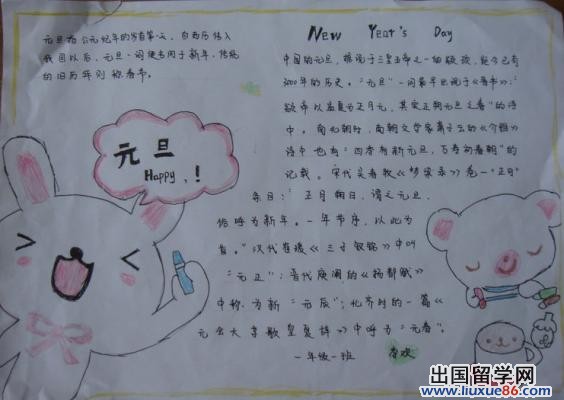 元旦为公元纪年的岁首第一天，自西历传入
我国以后，元旦一词便专用于新年，传统
的旧历年则称春节。
元旦
Happy,!
New Year's Day
中国的元旦，据说于三皇五帝之一的颛顼，距今已有
3000年的历史。"元旦"一词最早出现于《晋书》："
颛帝以孟夏正月为元，其实正朔元旦之春"的诗
中。南北朝时，南朝文学家萧子云的《介雅》
诗中也有"四季有新元旦，万寿初春朝"的
记载。宋代吴自牧《梦粱录》卷一"正月"
条目："正月朔日，谓之元旦，
俗呼为新年。一年节序，以此为
首。"汉代崔瑗《三子钗铭》中叫
"元正"；晋代庾阐的《扬都赋》
中称为新"元辰"；北齐时的一篇《
元会大享歌皇夏辞》中呼为"元春"。
一年级一班
出国留学网
www.liuxue86.com